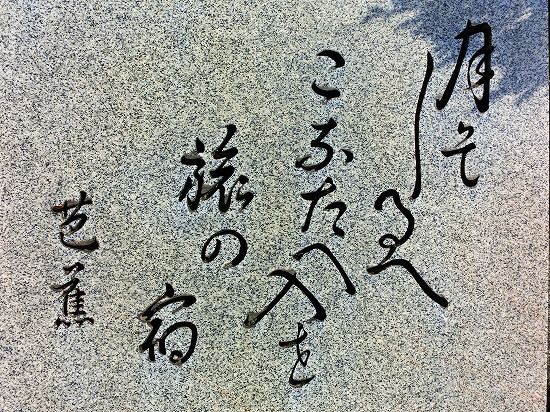 月そ
しるへ
こなたへ入せ
旅の宿
芭蕉